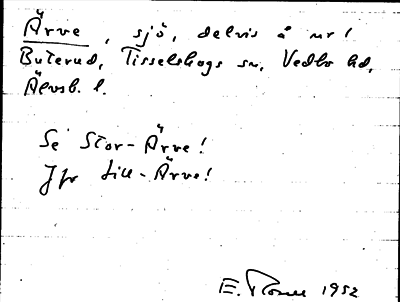 Ärve, sjö, delvis å nr 1
Buterud, Tisselskogs sn, Vedbo hd,
Älvsb. l.
Se Stor-Ärve!
Jfr Lill-Ärve!
E. 1952